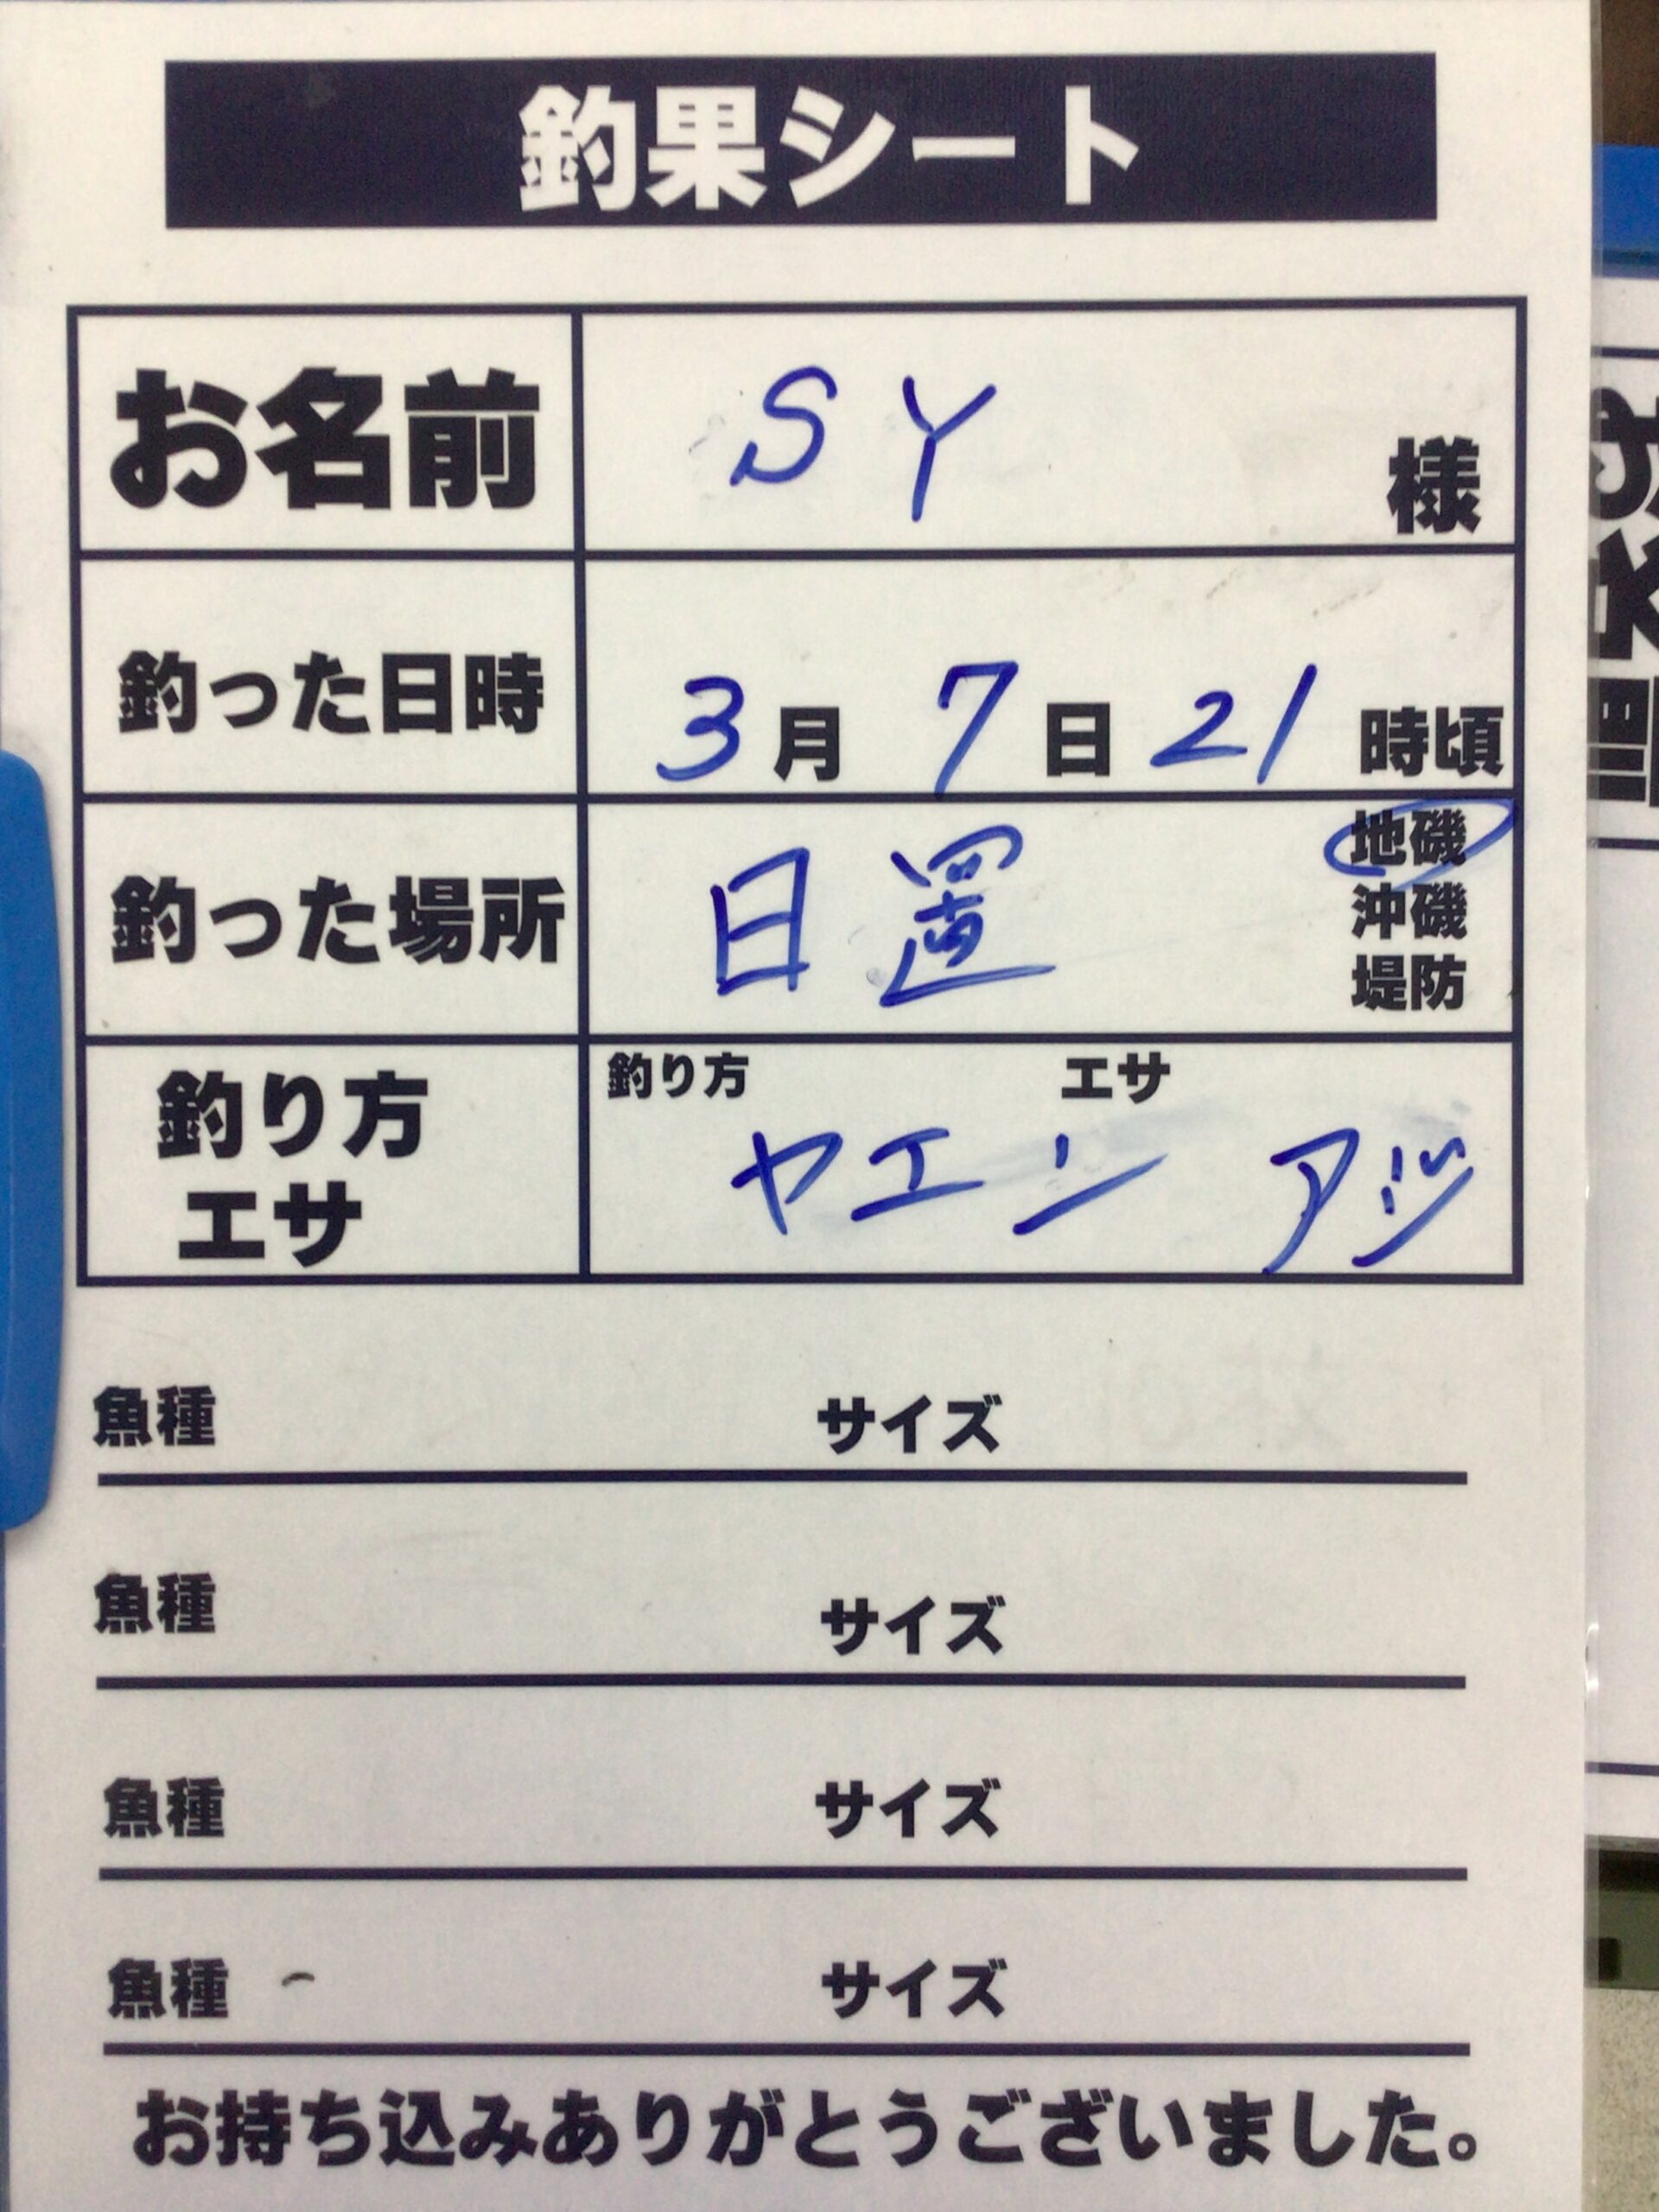 釣果シート
お名前 SY 様
釣った日時 3月7日21時頃
釣った場所 日置 地磯
沖磯
堤防
釣り方 エサ
釣り方 エサ
ヤエン アジ
魚種 サイズ
魚種 サイズ
魚種 サイズ
魚種 サイズ
お持ち込みありがとうございました。